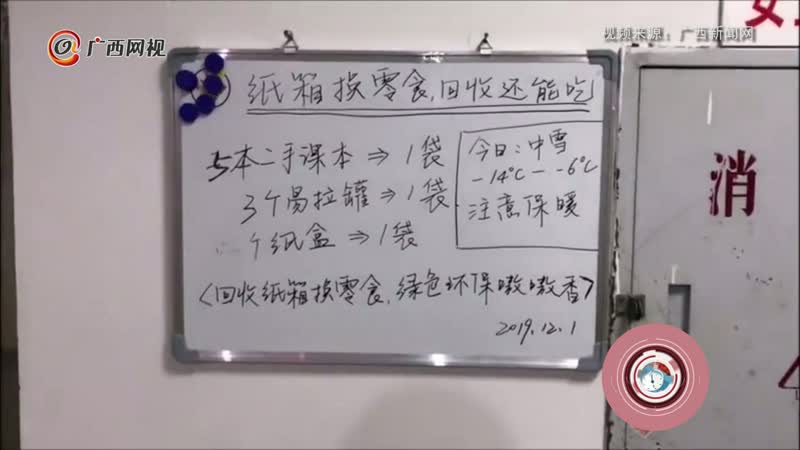 广西网视
视频来源：广西新闻网
纸箱换零食,回收还能吃
5本二手课本⇒1袋
3个易拉罐⇒1袋
个纸盒⇒1袋
今日：中雪
-14℃--6℃
注意保暖
〈回收纸箱换零食,绿色环保嗷嗷香〉
2019.12.1
消